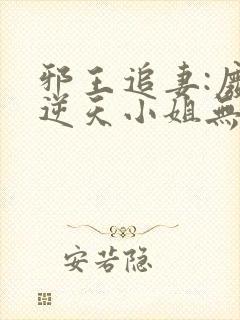 邪王追妻:
逆天小姐無
安若隐